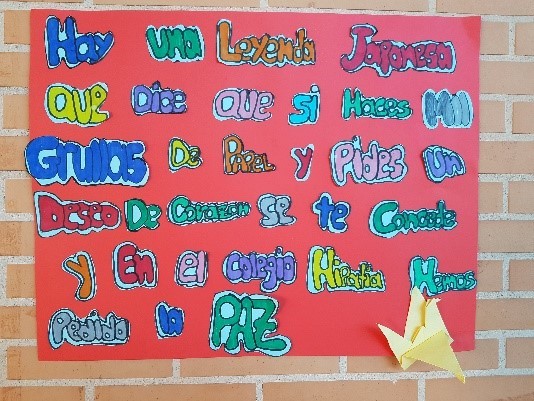 Hay una Leyenda Japonesa
Que Dice Que si Haces Mil
Grullas De Papel y Pides un
Deseo De Corazon se te Concede
y En el colegio Hipatia Hemos
Pedido la PAZ